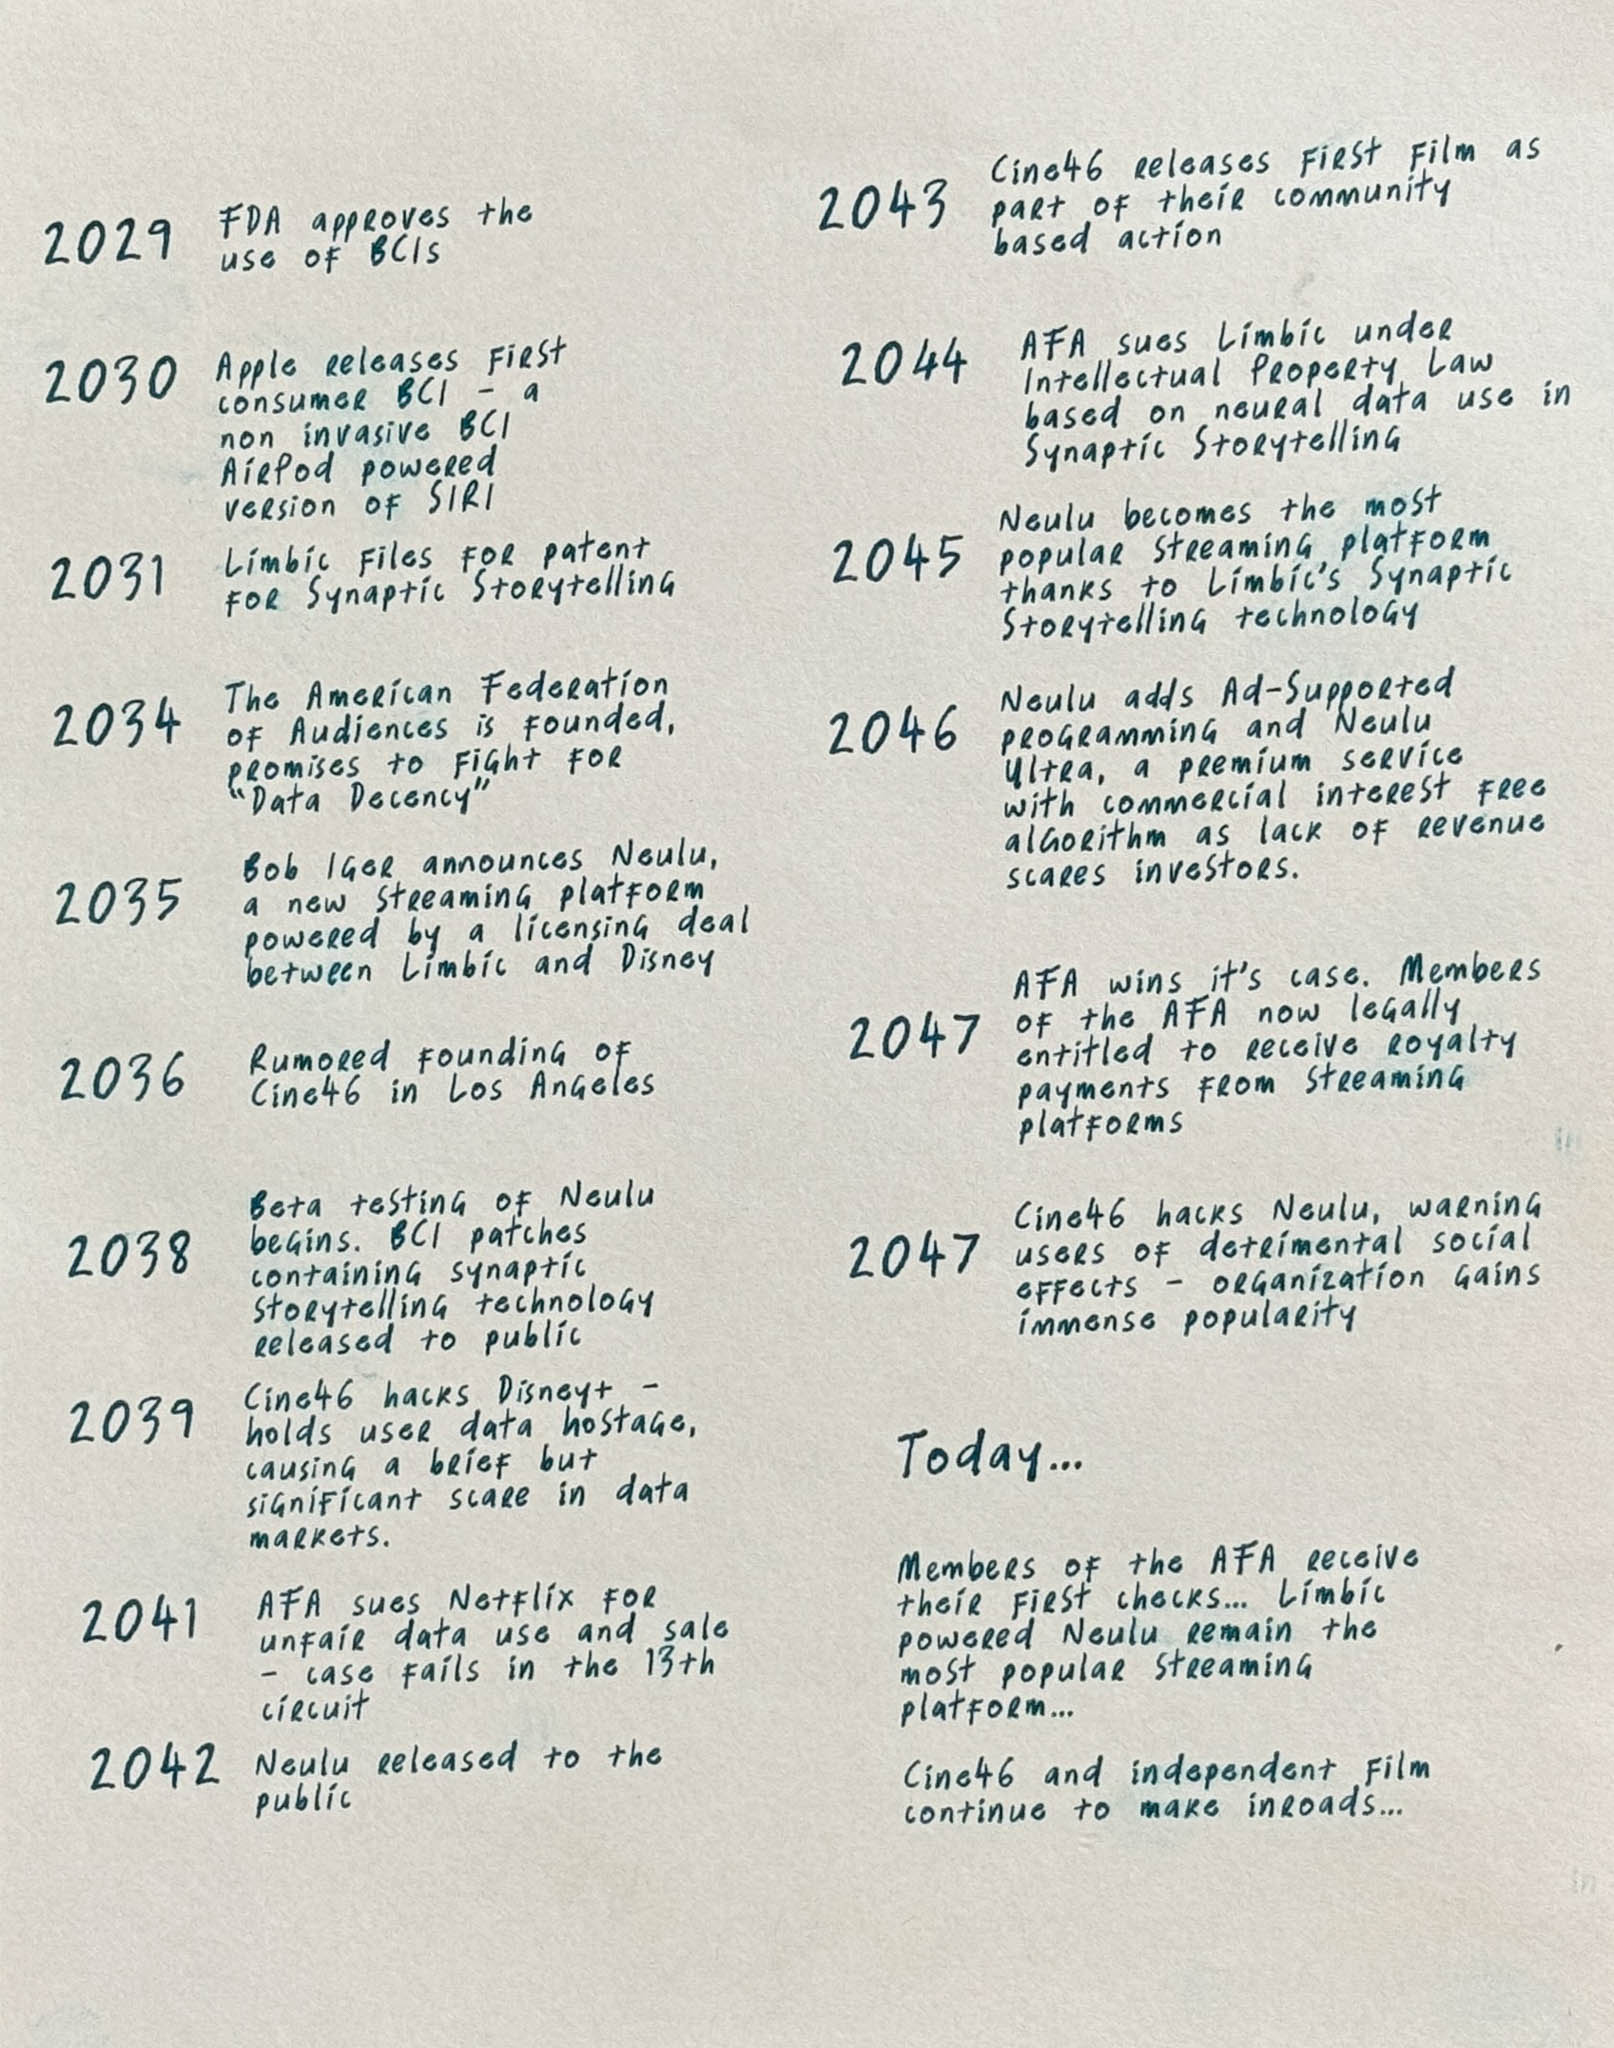 2029
FDA approves the
use of BCIs
2030
Apple releases first
consumer BCI - a
non invasive BCI
AirPod powered
version of SIRI
2031
Limbic files for patent
for Synaptic Storytelling
2034
The American Federation
of Audiences is founded,
promises to fight for
"Data Decency"
2035
Bob Iger announces Neulu,
a new streaming platform
powered by a licensing deal
between Limbic and Disney
2036
Rumored founding of
Cine46 in Los Angeles
2038
Beta testing of Neulu
begins. BCI patches
containing synaptic
storytelling technology
released to public
2039
Cine46 hacks Disney+ -
holds user data hostage,
causing a brief but
significant scare in data
markets.
2041
AFA sues Netflix for
unfair data use and sale
- case fails in the 13th
circuit
2042
Neulu released to the
public
2043
Cine46 releases first film as
part of their community
based action
2044
AFA sues Limbic under
Intellectual Property Law
based on neural data use in
Synaptic Storytelling
2045
Neulu becomes the most
popular streaming platform
thanks to Limbic's Synaptic
Storytelling technology
2046
Neulu adds Ad-Supported
programming and Neulu
Ultra, a premium service
with commercial interest free
algorithm as lack of revenue
scares investors.
2047
AFA wins it's case. Members
of the AFA now legally
entitled to receive royalty
payments from streaming
platforms
2047
Cine46 hacks Neulu, warning
users of detrimental social
effects - organization gains
immense popularity
Today...
Members of the AFA receive
their first checks... Limbic
powered Neulu remain the
most popular streaming
platform...
Cine46 and independent film
continue to make inroads...